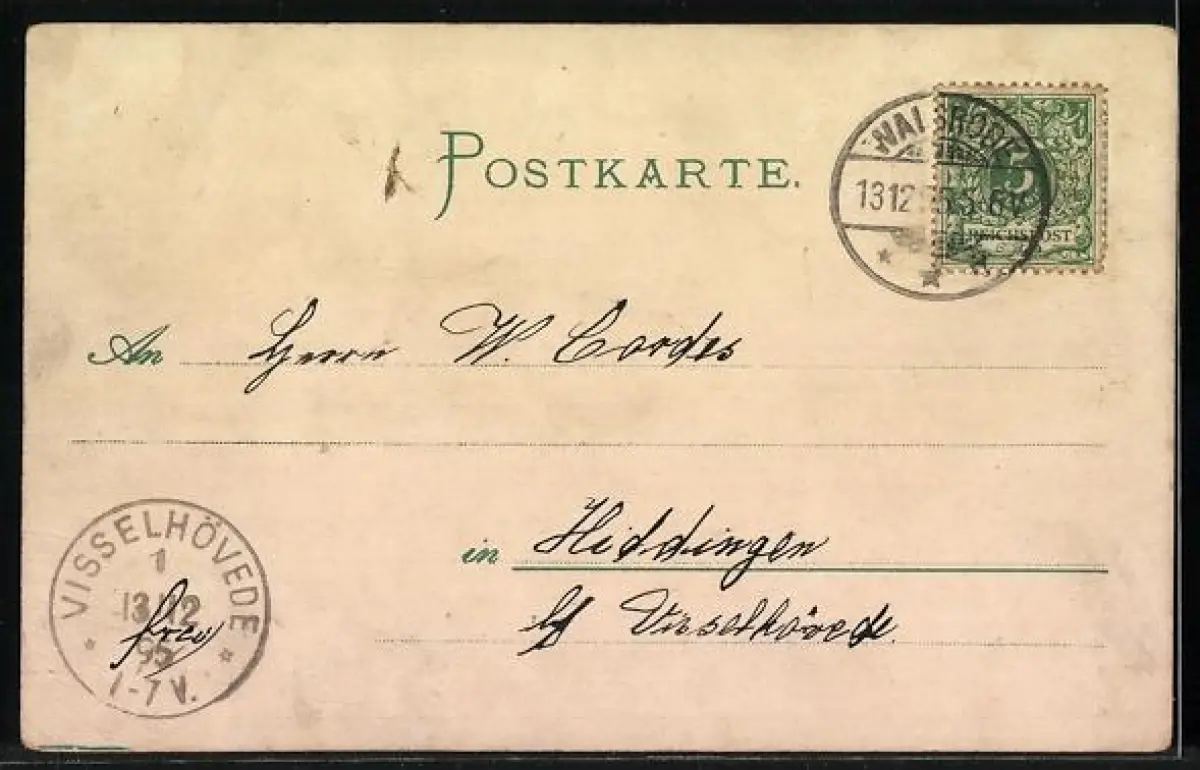 POSTKARTE.
WALSRODE
13 12
5
REICHSPOST
An Herrn W. Cordes
in Hiddingen
b/ Visselhövede.
VISSELHÖVEDE
1
13 12
95
7-7 V.
frei